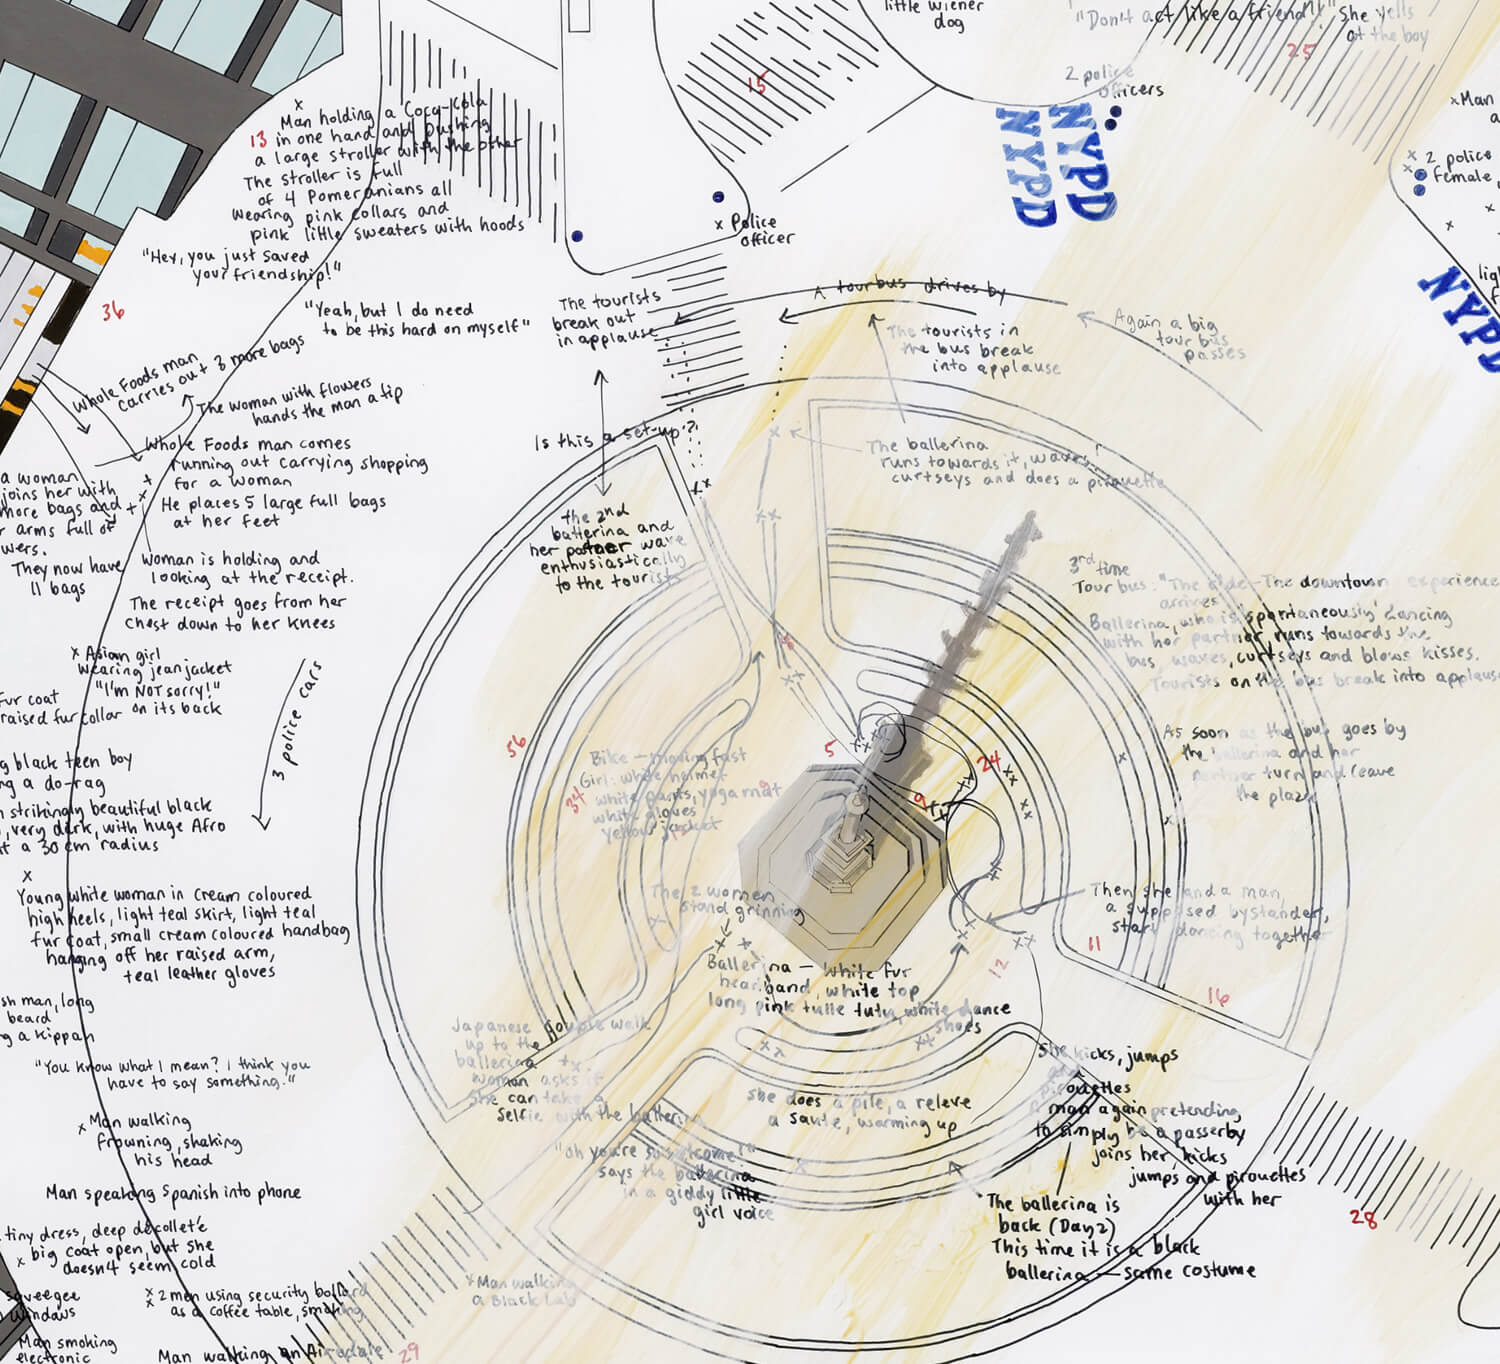 little wiener
dog
"Don't act like a friend!" She yells
at the boy
25
15
2 police
officers
NYPD
NYPD
x Man
x 2 police
x female
NYPD
x
Man holding a Coca-Kola
13 in one hand and pushing
a large stroller with the other
The stroller is full
of 4 Pomeranians all
wearing pink collars and
pink little sweaters with hoods
x Police
officer
"Hey, you just saved
your friendship!"
36
"Yeah, but I do need
to be this hard on myself"
The tourists
break out
in applause
A tour bus drives by
The tourists in
the bus break
into applause
Again a big
tour bus
passes
Whole Foods man
carries out 3 more bags
The woman with flowers
hands the man a tip
Whole Foods man comes
running out carrying shopping
for a woman
He places 5 large full bags
at her feet
a woman
joins her with
more bags and
arms full of
They now have
11 bags
Woman is holding and
looking at the receipt.
The receipt goes from her
chest down to her knees
Is this a set-up?
The 2nd
ballerina and
her partner wave
enthusiastically
to the tourists
The ballerina
runs towards it, waves,
curtseys and does a pirouette
3rd time
Tour bus: "The Ride - The downtown experience
arrives
Ballerina, who is 'spontaneously' dancing
with her partner runs towards the
bus, waves, curtseys and blows kisses.
Tourists on the bus break into applause
As soon as the bus goes by
the ballerina and her
partner turn and leave
the plaza
x Asian girl
wearing jean jacket
"I'm NOT sorry!"
on its back
fur coat
raised fur collar
3 police cars
black teen boy
a do-rag
strikingly beautiful black
very dark, with huge Afro
a 30 cm radius
x
Young white woman in cream coloured
high heels, light teal skirt, light teal
fur coat, small cream coloured handbag
hanging off her raised arm,
teal leather gloves
man, long
beard
a kippah
"You know what I mean? I think you
have to say something."
x Man walking
frowning, shaking
his head
Man speaking Spanish into phone
tiny dress, deep decolleté
x big coat open, but she
doesn't seem cold
squeegee
windows
x 2 men using security bollard
x as a coffee table, smoking
Man smoking
electronic
Man walking an Airedale
29
56
34
5
24
9
Bike - moving fast
Girl: white helmet
white pants, yoga mat
white gloves
yellow jacket
The 2 women
stand grinning
Ballerina - white fur
headband, white top
long pink tulle tutu, white dance
shoes
Then she and a man,
a supposed bystander,
start dancing together
11
12
16
Japanese couple walk
up to the
ballerina
woman asks if
she can take a
selfie with the ballerina
"Oh you're so welcome!"
says the ballerina
in a giddy little
girl voice
she does a plie, a releve
a saute, warming up
She kicks, jumps
and
pirouettes
A man again pretending
to simply be a passerby
joins her, kicks
jumps and pirouettes
with her
The ballerina is
back (Day 2)
This time it is a black
ballerina - same costume
28
x Man walking
a Black Lab